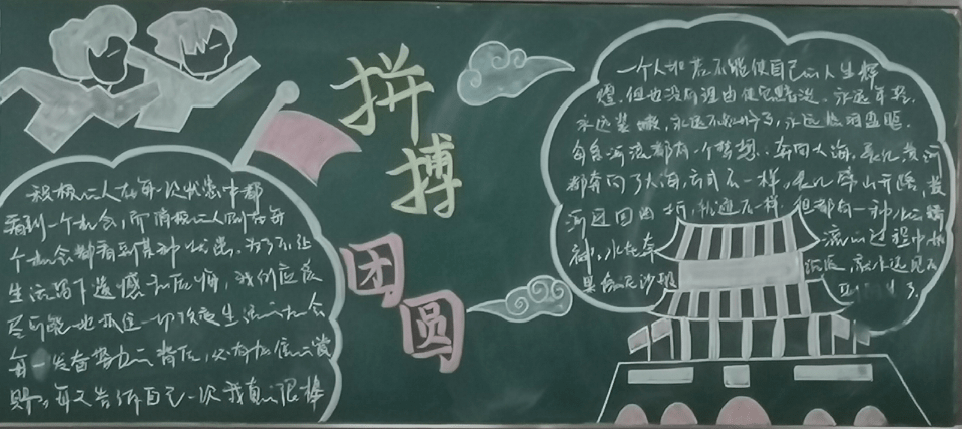 拼搏
团圆
积极的人在每一次忧患中都
看到一个机会，而消极的人则在每
个机会都看到某种忧患。为了不让
生活留下遗憾和后悔，我们应该
尽可能地抓住一切改变生活的机会
每一发奋努力的背后，必有加倍的赏
赐。每天告诉自己一次我真的很棒
一个人北若不能使自己的人生辉
煌，但也没有理由使它黯淡。永远年轻，
永远
每条河流都有一个梦想：奔向大海，长江黄河
都奔向了大海，方式不一样，长江劈山开路，黄
河迂回曲折，轨迹不一样，但都有一种水的精
神，水在奔 流的过程中如
果像泥沙般 沉淀，就永远见不